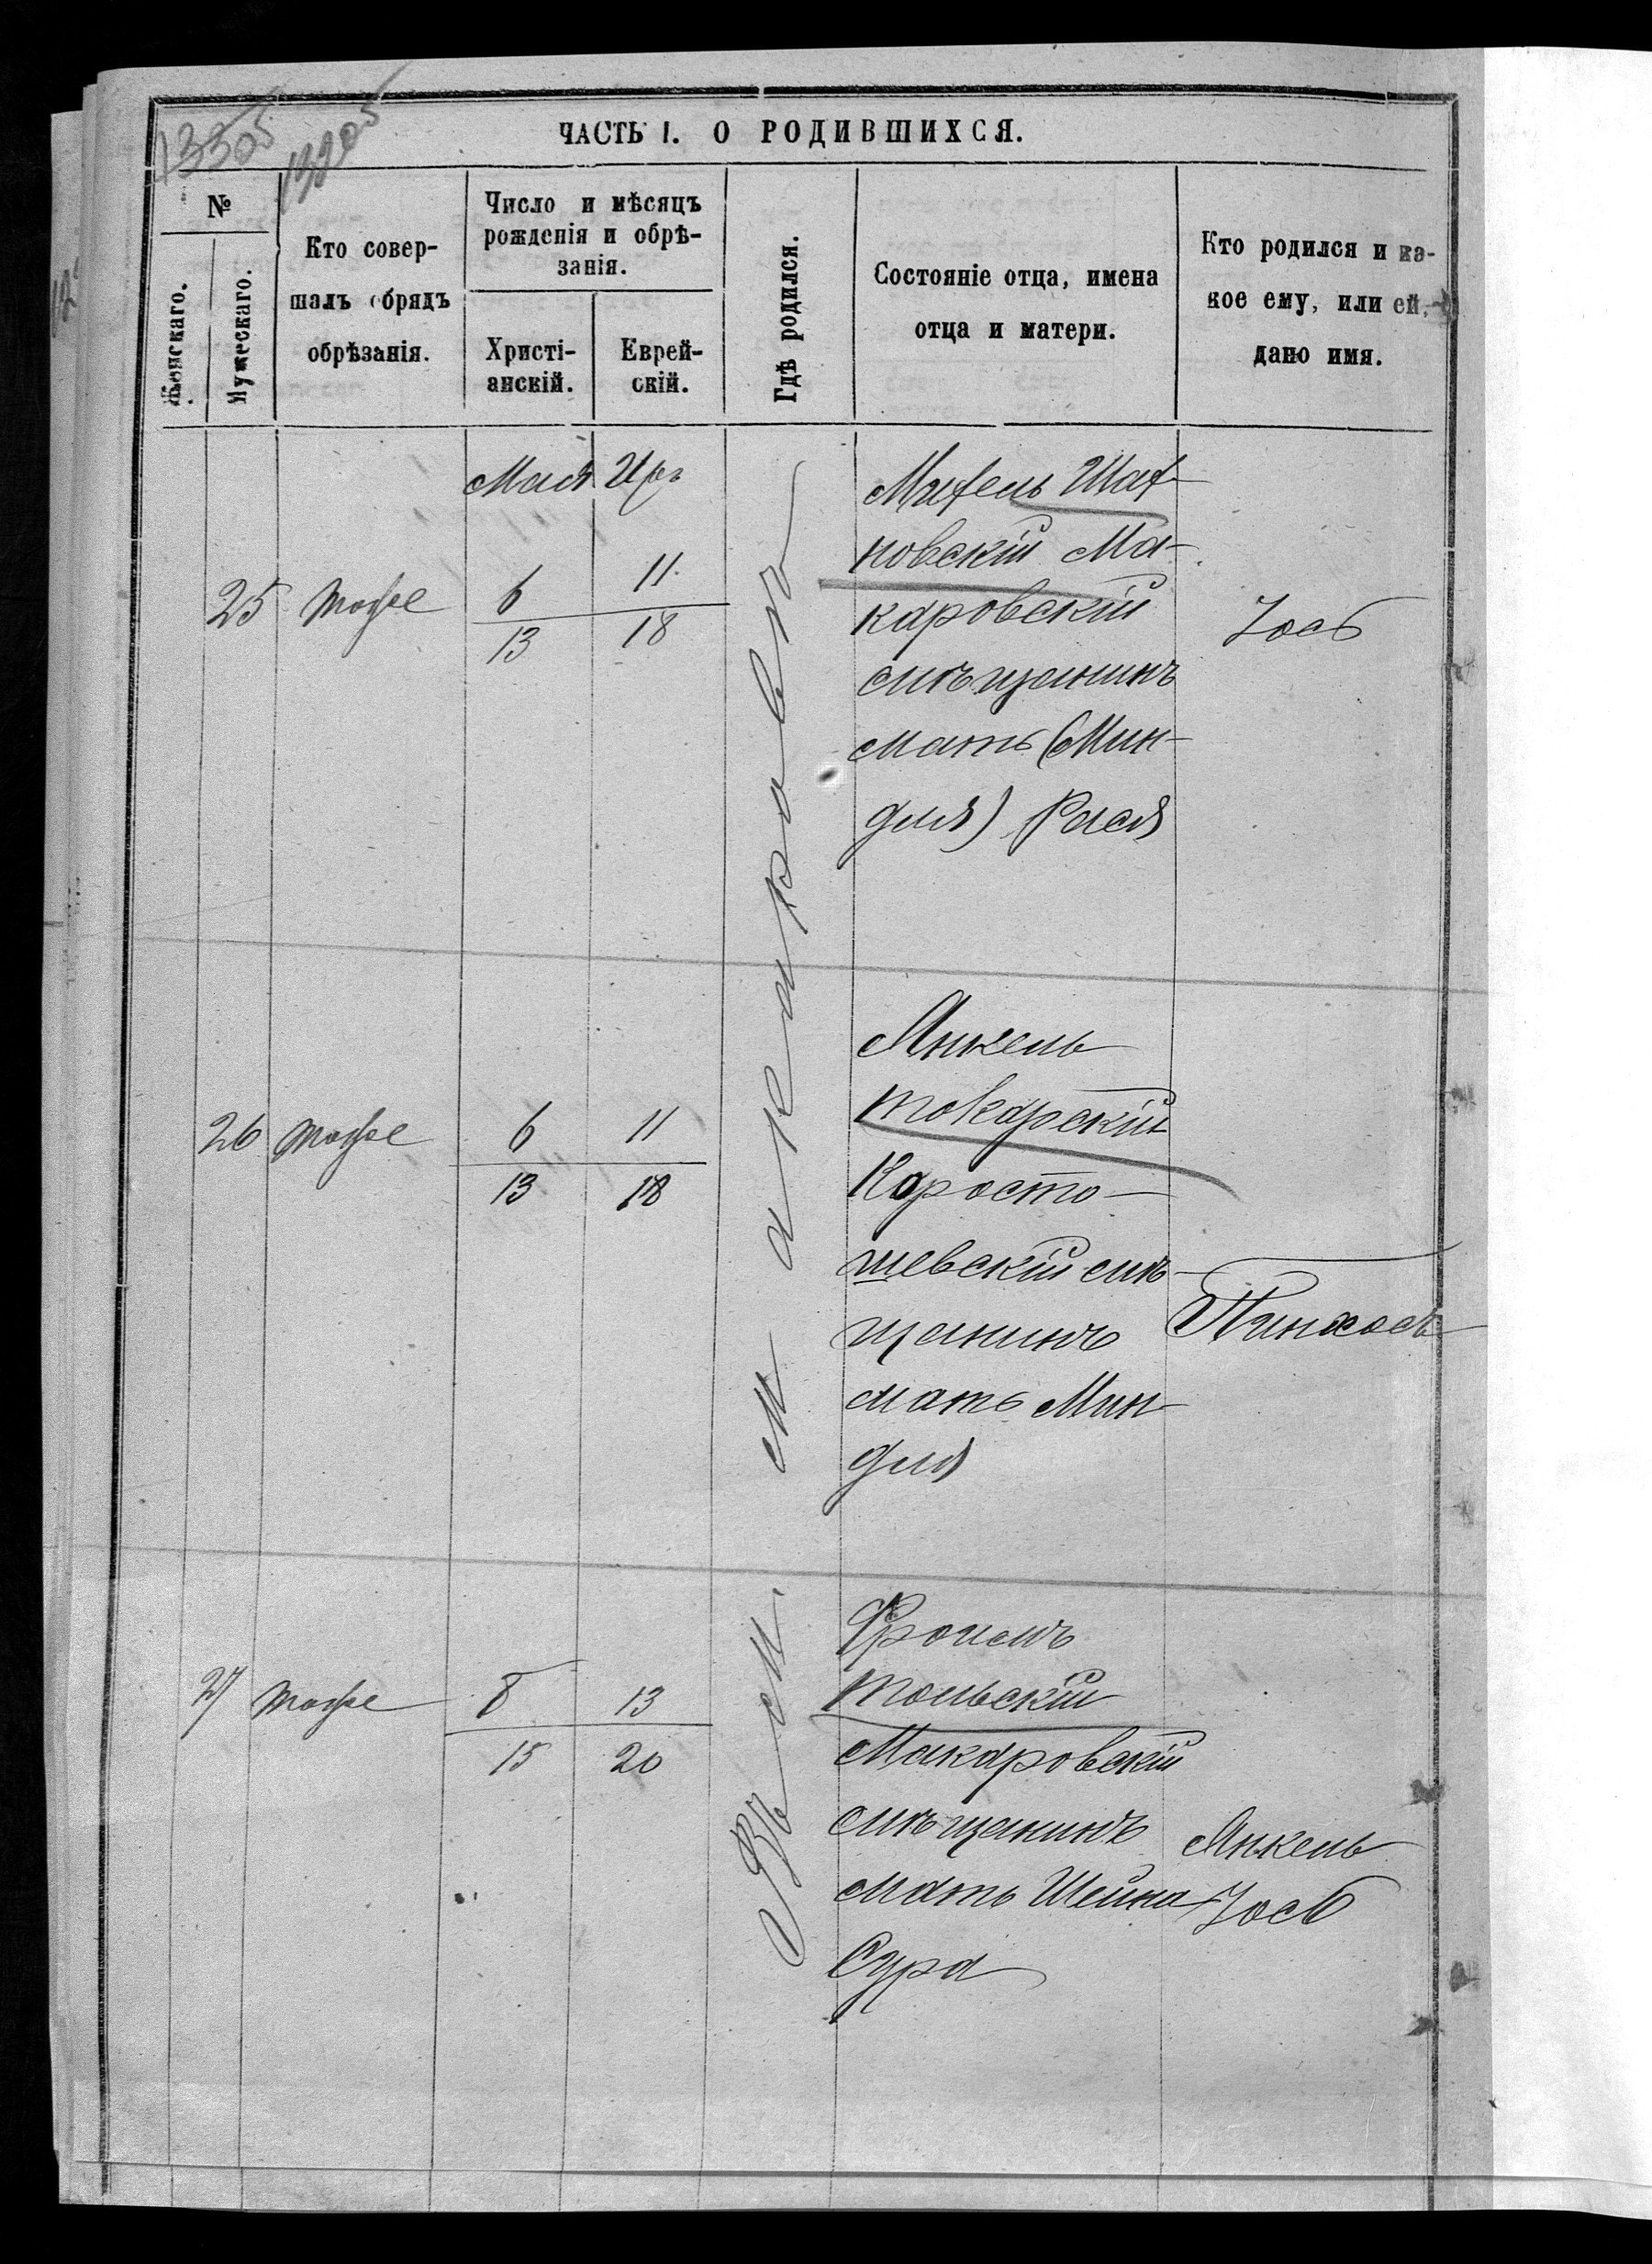 13305
13905
ЧАСТЬ I. О РОДИВШИХСЯ.
№
Женскаго.
Мужескаго.
Кто совер-
шалъ обрядъ
обрѣзанія.
Число и мѣсяцъ
рожденія и обрѣ-
занія.
Христі-
анскій.
Еврей-
скій.
Гдѣ родился.
Состояніе отца, имена
отца и матери.
Кто родился и ка-
кое ему, или ей,
дано имя.
Мая Иръ
Въ м. Макаровѣ
25 тоже
6 11.
13 18
Михель Шах-
новскій Ма-
каровскій
мѣщанинъ
мать (Мин-
для) Рася
Іось
26 тоже
6 11
13 18
Янкель
Токарскій
Коросто-
шевскій мѣ-
щанинъ
мать Мин-
для
Пинхось
27 тоже
8 13
15 20
Фроимъ
Тольскій
Макаровскій
мѣщанинъ
мать Шейна
Сура
Янкель
Іось